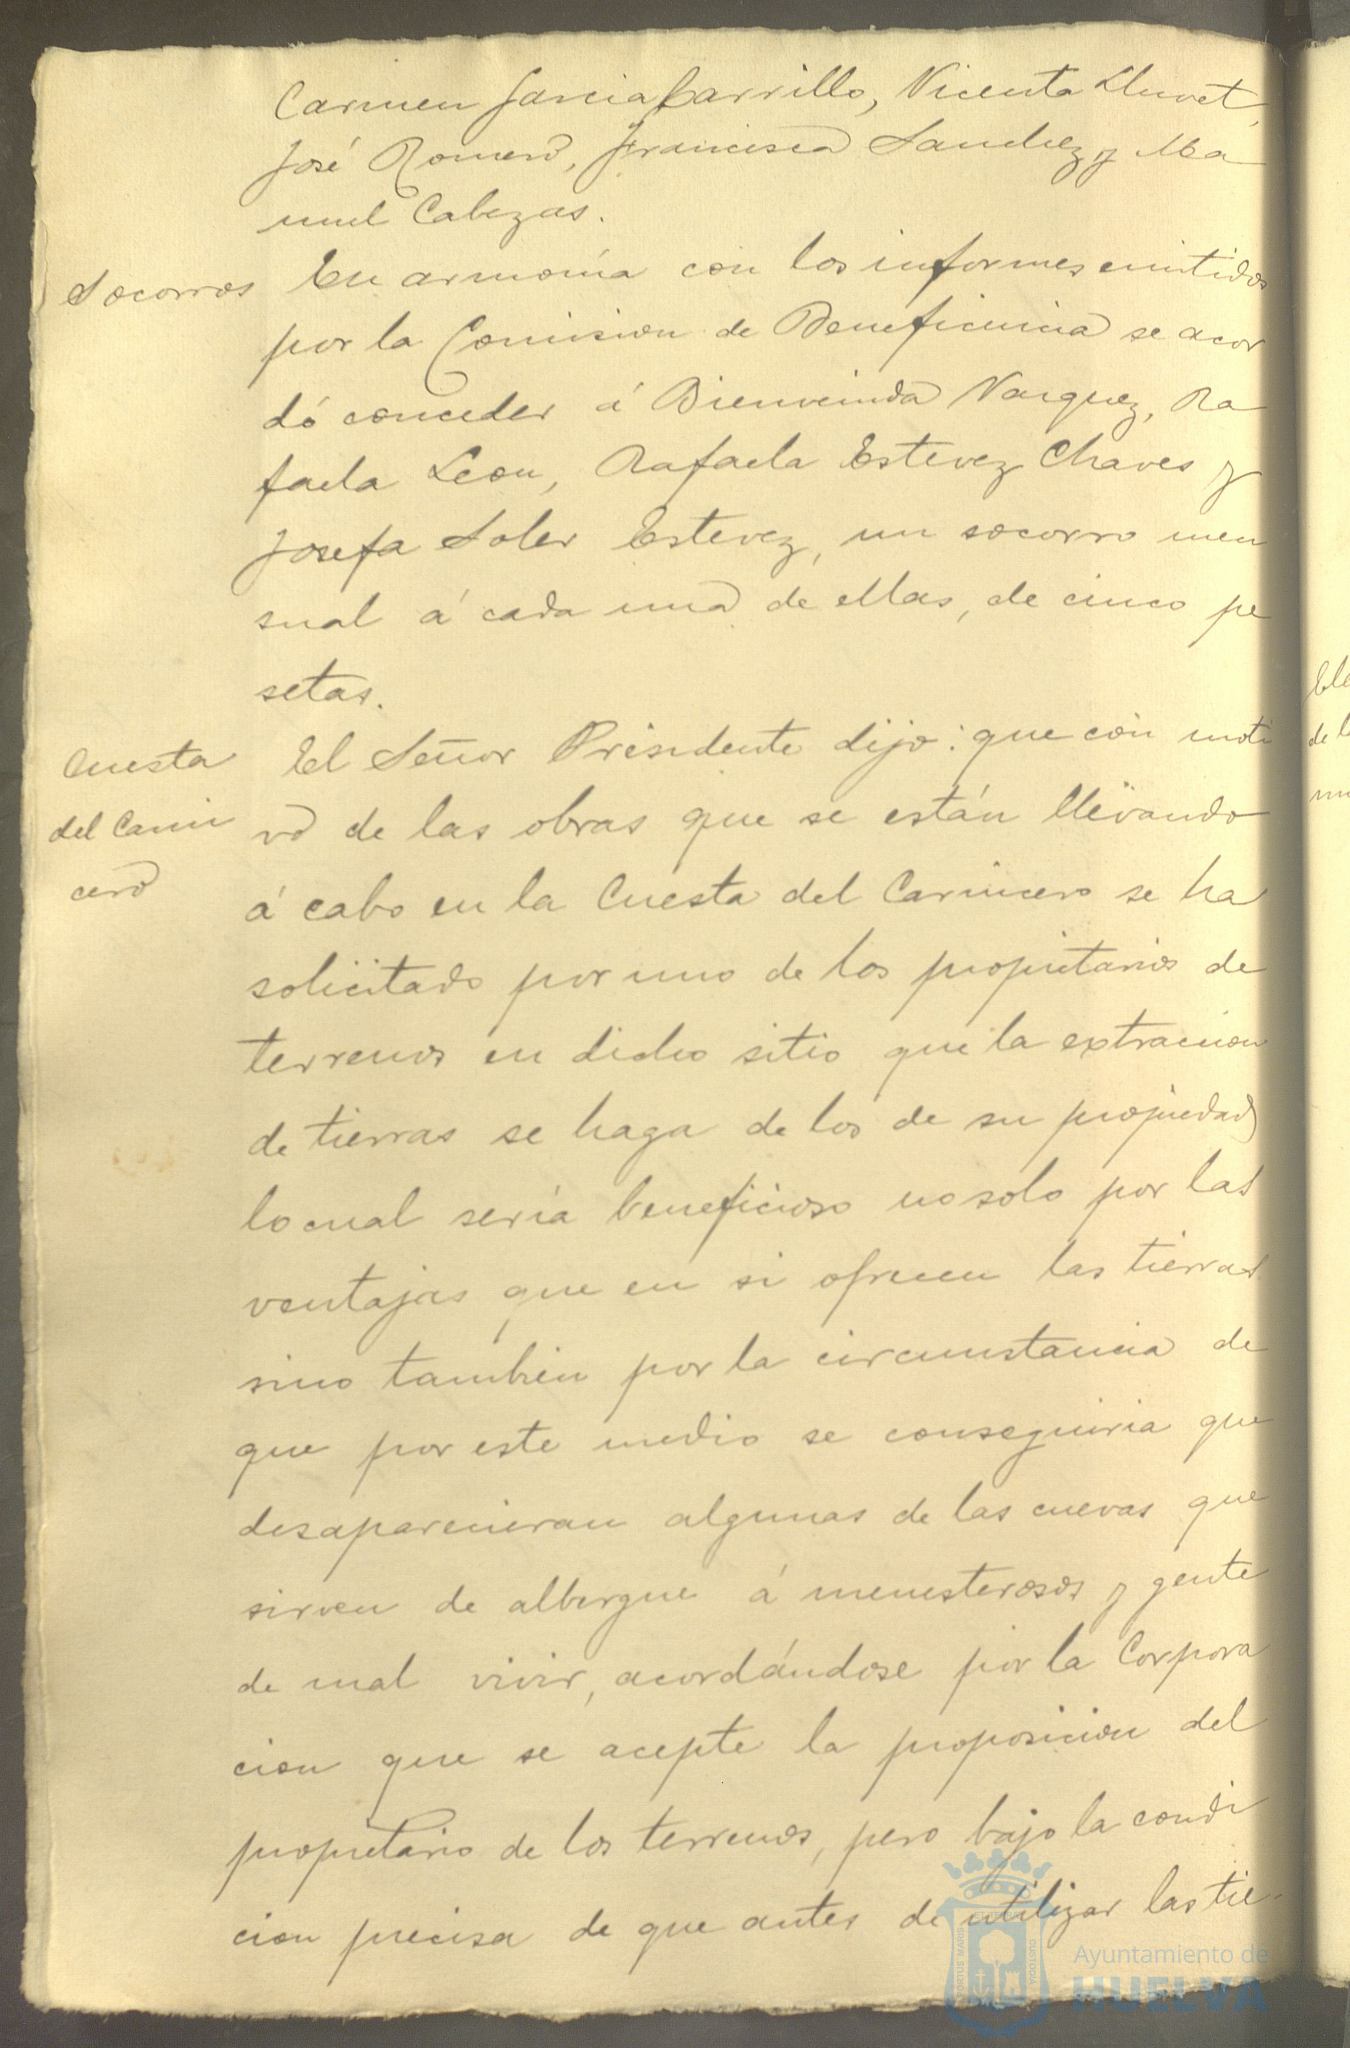 Carmen Garcia Carrillo, Vicenta Lluvet,
José Romero, Francisca Sanchez y Ma
nuel Cabezas.
Socorros En armonía con los informes emitidos
por la Comision de Beneficiencia se acor
dó conceder á Bienvenida Vazquez, Ra
faela Leon, Rafaela Estevez Chaves y
Josefa Soler Estevez, un socorro men
sual á cada una de ellas, de cinco pe
setas.
Cuesta El Señor Presidente dijo: que con moti
del Carni vo de las obras que se están llevando
cero á cabo en la Cuesta del Carnicero se ha
solicitado por uno de los propietarios de
terrenos en dicho sitio que la extraccion
de tierras se haga de los de su propiedad
lo cual sería beneficioso no solo por las
ventajas que en si ofrecen las tierras
sino tambien por la circunstancia de
que por este medio se conseguiria que
desaparecieran algunas de las cuevas que
sirven de albergue á menesterosos y gente
de mal vivir, acordándose por la Corpora
cion que se acepte la proposicion del
propietario de los terrenos, pero bajo la condi
cion precisa de que antes de utilizar las tie-
Ayuntamiento de
HUELVA